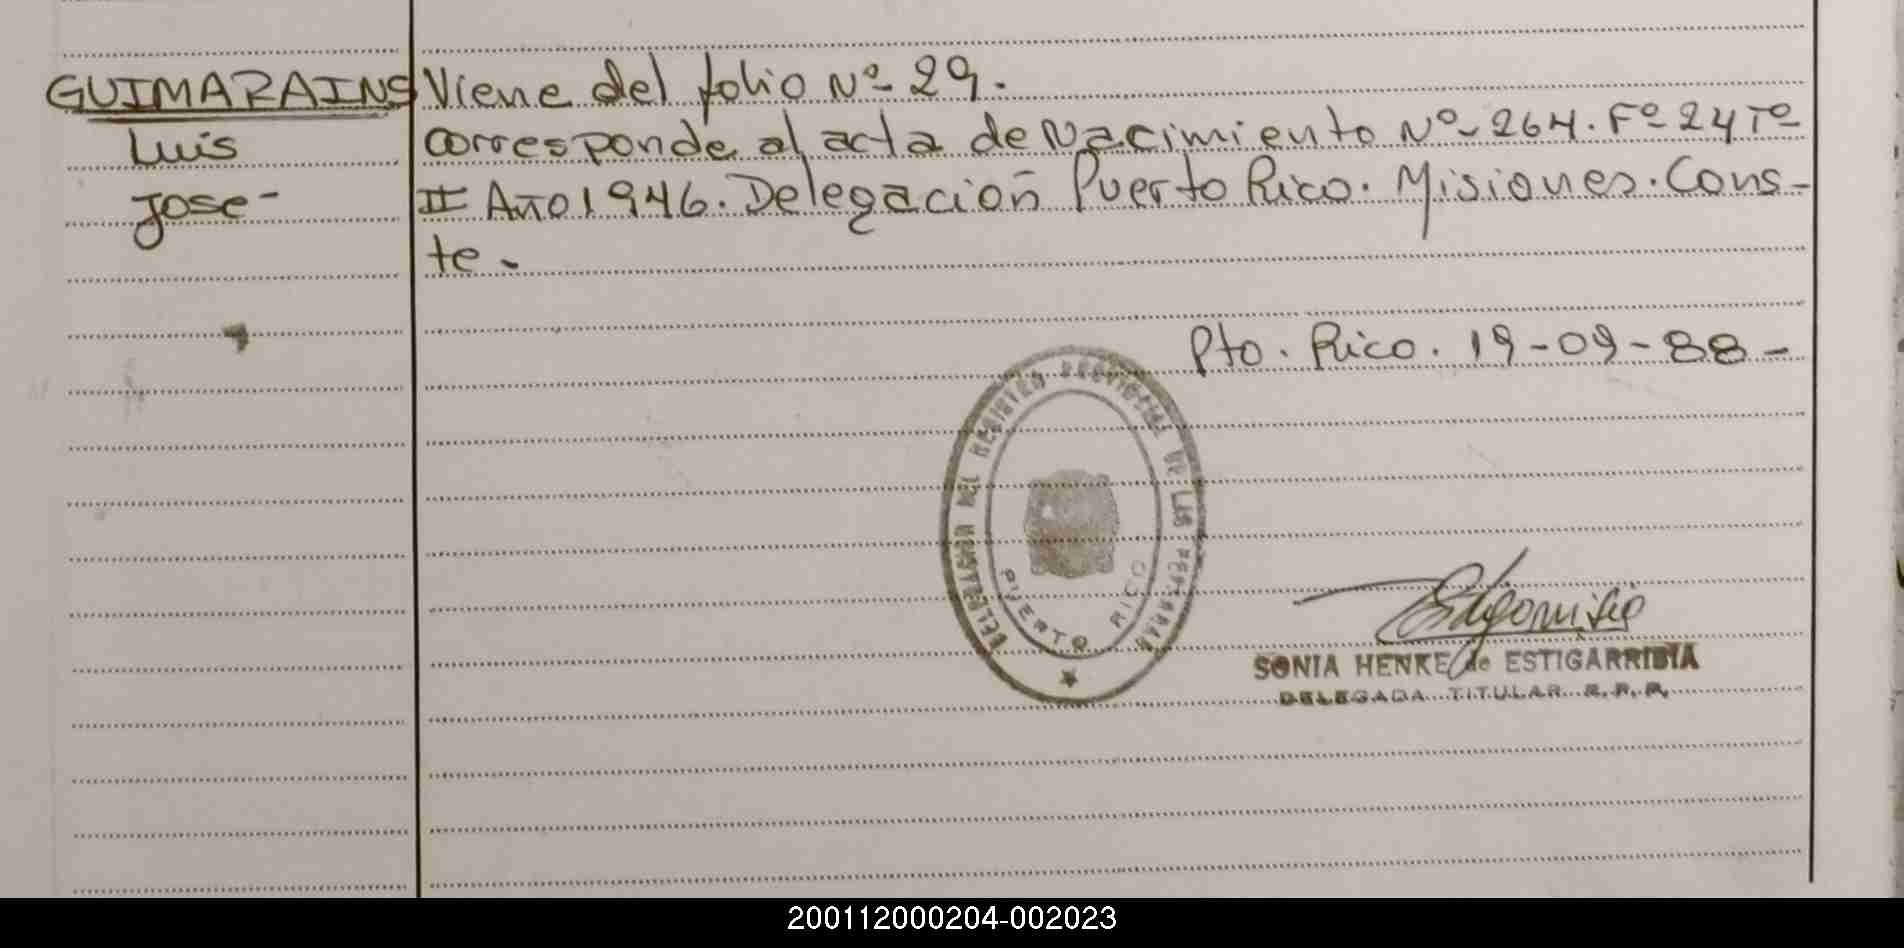 GUIMARAINS
Luis
Jose-
Viene del folio Nº 29.
corresponde al acta de Nacimiento Nº 264. Fº 24 Tº
II Año 1946. Delegación Puerto Rico. Misiones. Cons-
te.
Pto. Rico. 19-09-88-
DELEGACION DEL REGISTRO PROVINCIAL DE LAS PERSONAS
PUERTO RICO
SONIA HENKE de ESTIGARRIBIA
DELEGADA TITULAR R. P. P.
200112000204-002023